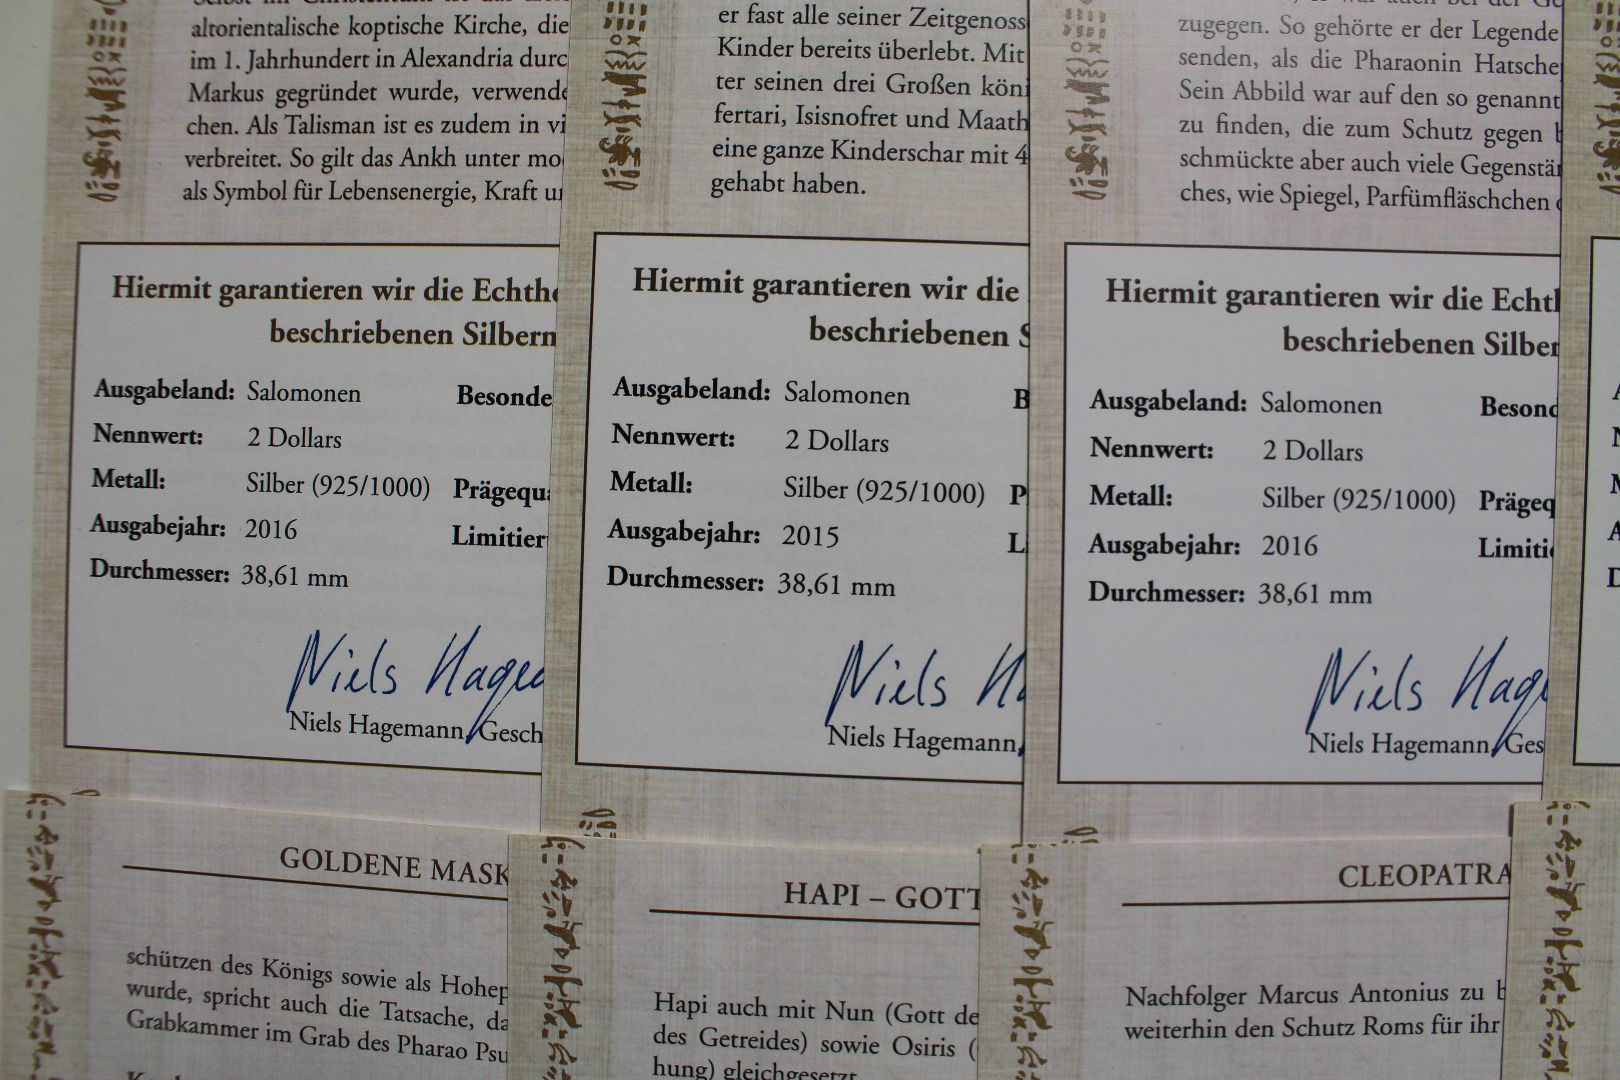 altorientalische koptische Kirche, die
im 1. Jahrhundert in Alexandria durc
Markus gegründet wurde, verwende
chen. Als Talisman ist es zudem in vi
verbreitet. So gilt das Ankh unter mo
als Symbol für Lebensenergie, Kraft u
Hiermit garantieren wir die Echthe
beschriebenen Silberm
Ausgabeland: Salomonen Besonde
Nennwert: 2 Dollars
Metall: Silber (925/1000) Prägequa
Ausgabejahr: 2016 Limitier
Durchmesser: 38,61 mm
Niels Hagem
Niels Hagemann, Gesch
er fast alle seiner Zeitgenoss
Kinder bereits überlebt. Mit
ter seinen drei Großen köni
fertari, Isisnofret und Maath
eine ganze Kinderschar mit 4
gehabt haben.
Hiermit garantieren wir die
beschriebenen S
Ausgabeland: Salomonen B
Nennwert: 2 Dollars
Metall: Silber (925/1000) P
Ausgabejahr: 2015 L
Durchmesser: 38,61 mm
Niels Ha
Niels Hagemann,
zugegen. So gehörte er der Legende
senden, als die Pharaonin Hatschep
Sein Abbild war auf den so genannt
zu finden, die zum Schutz gegen b
schmückte aber auch viele Gegenstän
ches, wie Spiegel, Parfümfläschchen o
Hiermit garantieren wir die Echth
beschriebenen Silber
Ausgabeland: Salomonen Besond
Nennwert: 2 Dollars
Metall: Silber (925/1000) Prägeq
Ausgabejahr: 2016 Limitie
Durchmesser: 38,61 mm
Niels Hage
Niels Hagemann, Ges
A
N
M
A
D
GOLDENE MASK
schützen des Königs sowie als Hohep
wurde, spricht auch die Tatsache, da
Grabkammer im Grab des Pharao Psu
HAPI – GOTT
Hapi auch mit Nun (Gott de
des Getreides) sowie Osiris (
hung) gleichgesetzt
CLEOPATRA
Nachfolger Marcus Antonius zu b
weiterhin den Schutz Roms für ihr